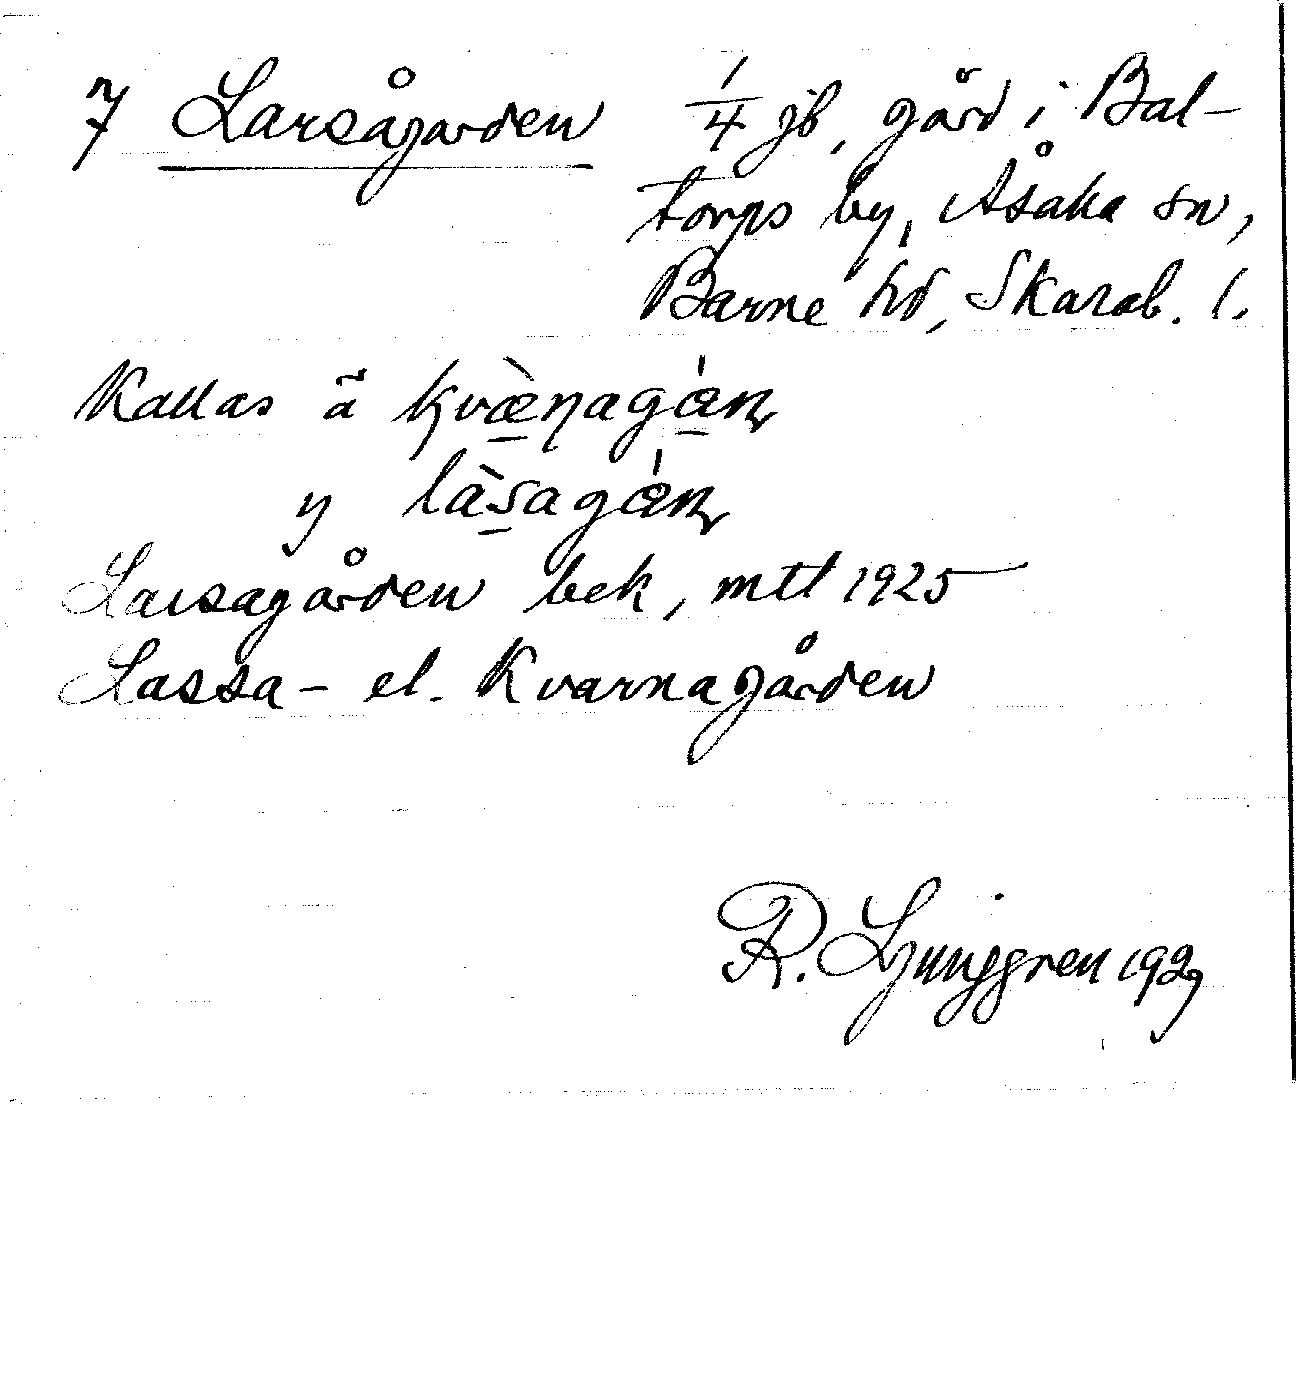 7 Larsagården 1/4 jb, gård i Bal-
torps by, Åsaka sn,
Barne hd, Skarab. l.
Kallas ä
y
Larsagården bek, mtl 1925
Lassa- el. Kvarnagården
R. Ljunggren 1929